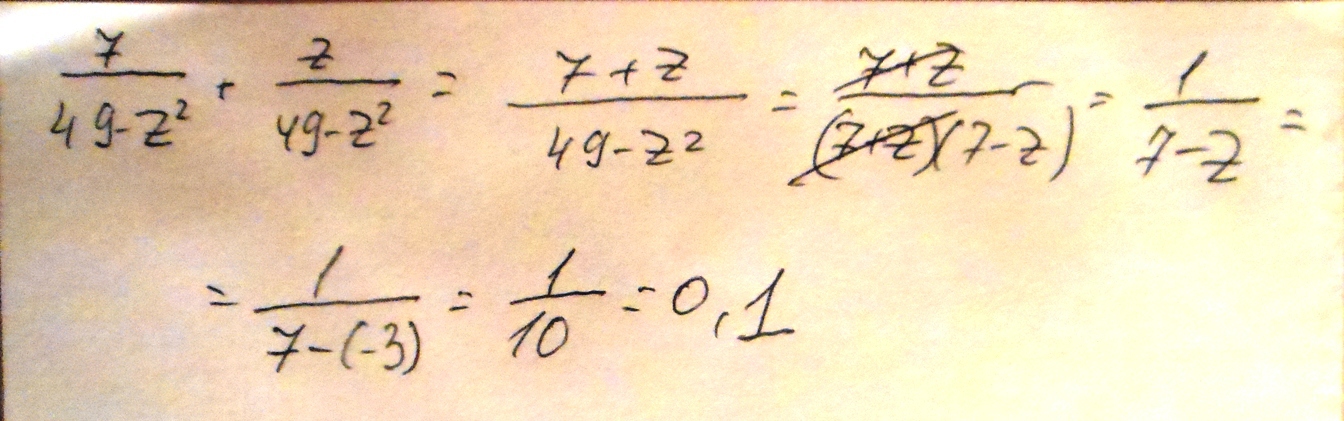 7/(49-z²) + z/(49-z²) = (7+z)/(49-z²) = (7+z)/((7+z)(7-z)) = 1/(7-z) =
= 1/(7-(-3)) = 1/10 = 0,1